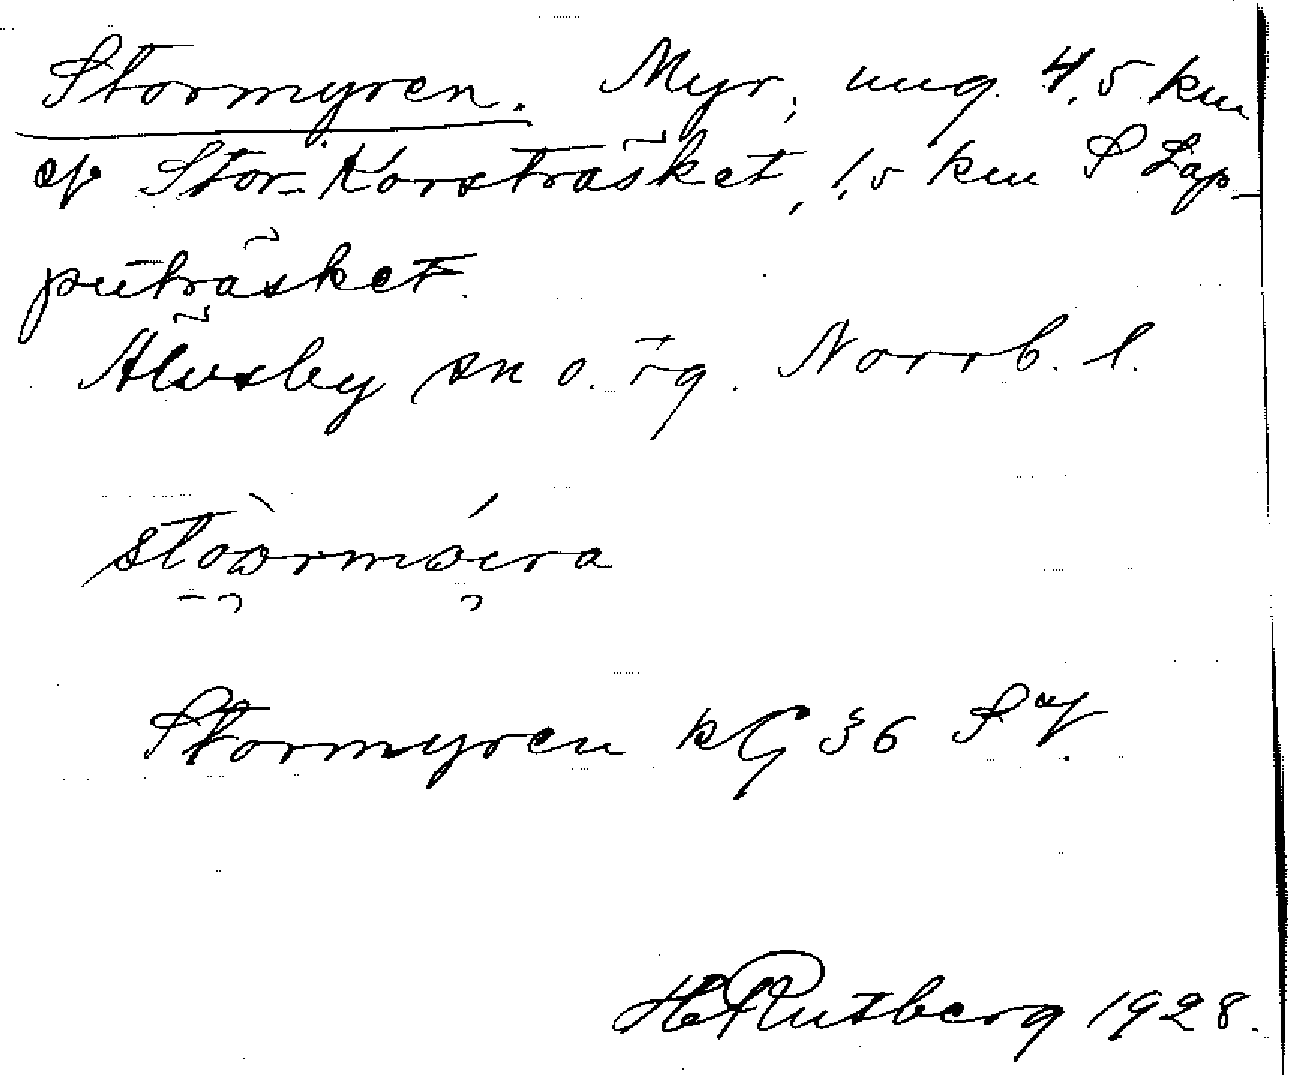 Stormyren. Myr, ung. 4,5 km
af Stor-Korsträsket, 1,5 km S Lap-
puträsket.
Älvsby sn o. rg. Norrb. l.
Stormyren kG 36 SV.
H Rutberg 1928.